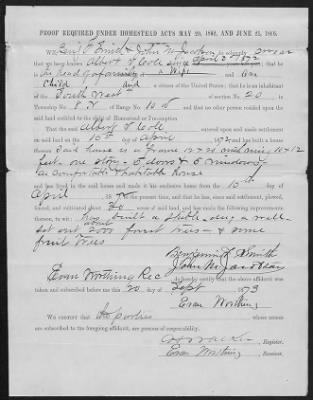 PROOF REQUIRED UNDER HOMESTEAD ACTS MAY 20, 1862, AND JUNE 21, 1866.
We, Benj F Smith John M Jacobson do solemnly swear
that we have known Albert T Cole since April 3d 1872
is head of a family a Wife and
Child and a citizen of the United States; that he is an inhabitant
of the South West of section No. 20 in
Township No. 8 N of Range No. 10 and that no other person resided upon the
said land entitled to the right of Homestead or Pre-emption
That the said Albert T Cole entered upon and made settlement
on said land on the 10th day of April 1872 and has built a house
thereon said house is a frame 12 x 24 10 x 12
feet one story 2 doors & 5 windows
a comfortable & habitable house
and has lived in the said house and made it his exclusive home from the 10th day of
April to the present time, and that he has, since said settlement,
plowed, fenced, and cultivated about 20 acres of said land, and has made the following improvements
thereon, to wit: has built a stable dug a well
set out about 2000 forest trees & some
fruit trees
Benjamin F Smith
John M Jacobson
I, Evan Worthing Rec do hereby certify that the above affidavit was
and subscribed before me this 20 day of Sept 1873
Evan Worthing
We certify that parties whose names
are subscribed to the foregoing affidavit, are persons of respectability.
, Register.
Evan Worthing, Receiver.